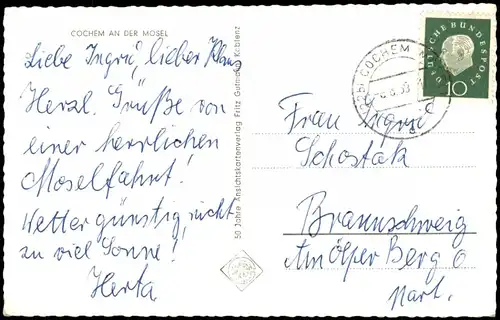 COCHEM AN DER MOSEL
Liebe Ingrid, lieber Klaus
Herzl. Grüße von
einer herrlichen
Moselfahrt!
Wetter günstig, nicht
zu viel Sonne!
Herta
50 Jahre Ansichtskartenverlag Fritz Koblenz
COCHEM
DEUTSCHE BUNDESPOST
10
Frau Ingrid
Schostak
Braunschweig
Am Ölper Berg 6
Part.